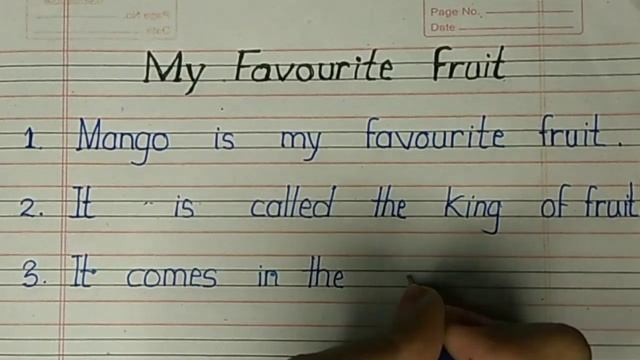 Page No.
Date
My Favourite Fruit
1. Mango is my favourite fruit.
2. It is called the king of fruit
3. It comes in the